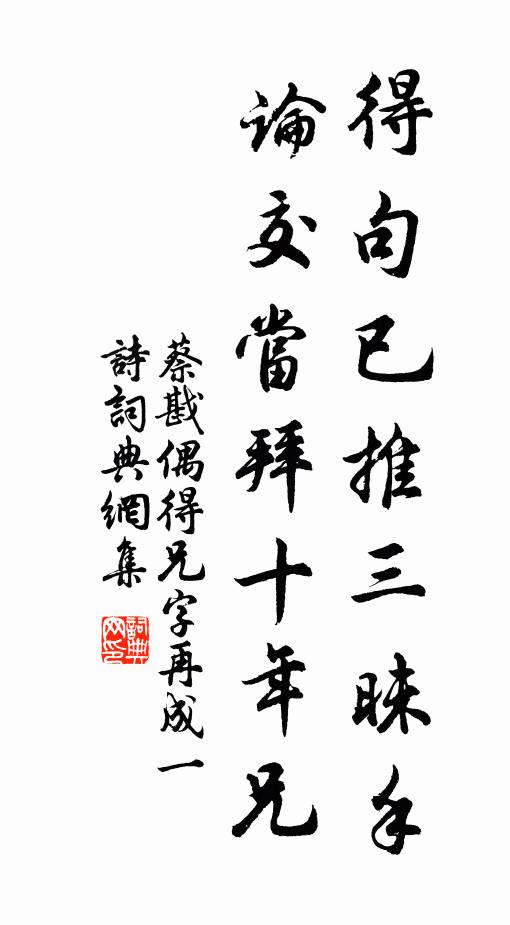 得句已推三昧手
論交當拜十年兄
蔡戡偶得兄字再成一
詩詞典網集
詞典网印